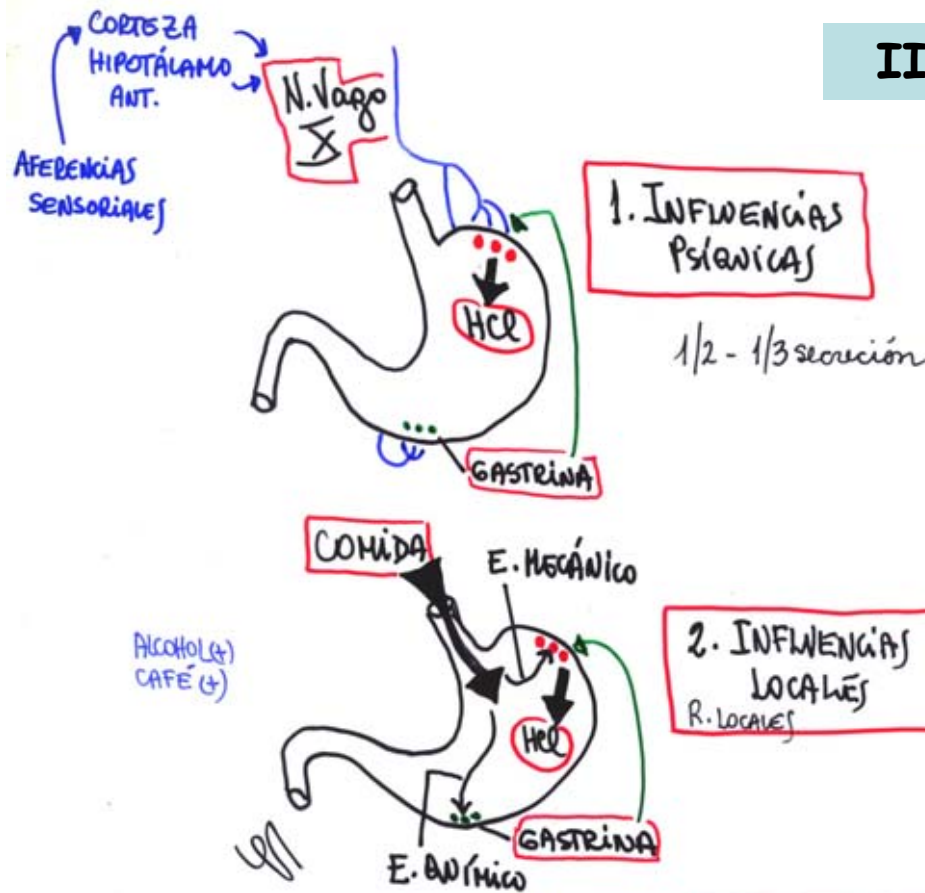 CORTEZA
HIPOTÁLAMO
ANT.
AFERENCIAS
SENSORIALES
N. Vago
X
II
1. INFLUENCIAS
PSÍQUICAS
HCl
1/2 - 1/3 secreción
GASTRINA
COMIDA
E. MECÁNICO
ALCOHOL (+)
CAFÉ (+)
2. INFLUENCIAS
LOCALES
R. LOCALES
HCl
GASTRINA
E. QUÍMICO